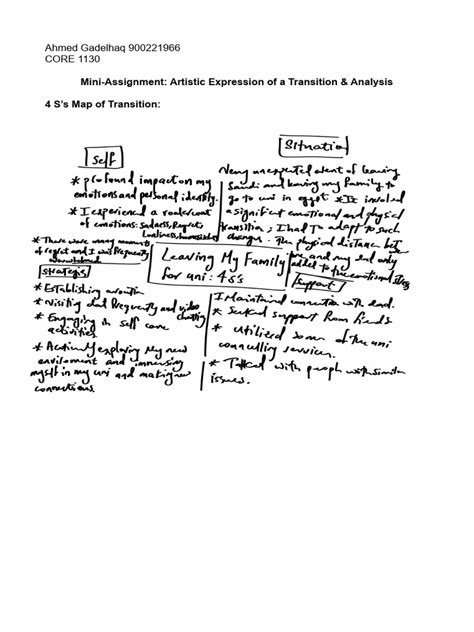 Ahmed Gadelhaq 900221966
CORE 1130
Mini-Assignment: Artistic Expression of a Transition & Analysis
4 S's Map of Transition:
Self
* profound impact on my
emotions and personal identity.
* I experienced a rollercoast
of emotions: sadness, Regret,
Loneliness,
* There were many moments
of regret and I was frequently
overwhelmed
Situation
Very unexpected event of leaving
Saudi and leaving my family to
go to uni in egypt * It involved
a significant emotional and physical
transition, I had to adapt to such
changes. The physical distance bet
me and my only
added to the emotional
Leaving My Family
for uni: 4 S's
strategies
* Establishing a routin
* visiting dad frequently and video
chatting
* Engaging in self care
activities
* Actively exploring my new
enviroment and immersing
myself in my uni and making new
connections.
support
I Maintained connection with dad.
* Seeked support from friends
* utilized some of the uni
councelling services.
* Talked with people with similar
issues.